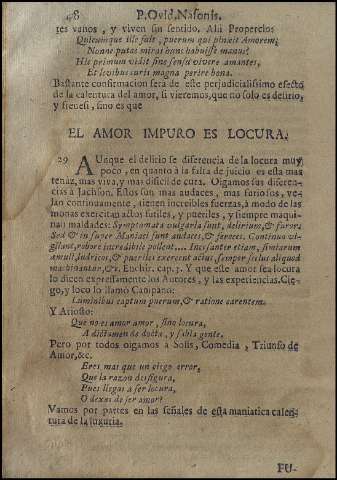 48 P. Ovid. Nasonis.
res vanos, y viven sin sentido. Ahi Propercio:
Quicunque ille fuit, puerum qui pinxit Amorem,
Nonne putas miras hunc habuisse manus?
Hic primum vidit sine sensu vivere amantes,
Et levibus curis magna perire bona.
Bastante confirmacion sera de este perjudicialissimo efecto
de la calentura del amor, si vieremos, que no solo es delirio,
y frenesi, sino es que
EL AMOR IMPURO ES LOCURA.
29 AUnque el delirio se diferencia de la locura muy
poco, en quanto à la falta de juicio es esta mas
tenaz, mas viva, y mas dificil de cura. Oigamos sus diferen-
cias à Jachson. Estos son mas audaces, mas furiosos, ve-
lan continuamente, tienen increibles fuerzas, à modo de las
monas exercitan actos futiles, y pueriles, y siempre maqui-
nan maldades: Symptomata vulgaria sunt, delirium, & furor.
Sed & in super Maniaci sunt audaces, & feroces. Continuo vi-
gilant, robore incredibile pollent.... Incessanter etiam, simiarum
æmuli, ludricos, & pueriles exercent actus, semper scelus aliquod
machinantur, &c. Enchir. cap. 3. Y que este amor sea locura
lo dicen expressamente los Autores, y las experiencias. Cie-
go, y loco lo llamò Campano:
Luminibus captum puerum, & ratione carentem.
Y Ariosto:
Que no es amor amor, sino locura,
A dictamen de docta, y sabia gente.
Pero por todos oigamos à Solis, Comedia, Triunfo de
Amor, &c.
Eres mas que un ciego error,
Que la razon desfigura,
Pues llegas à ser locura,
O dexas de ser amor?
Vamos por partes en las señales de esta maniatica calen-
tura de la luxuria.
FU-